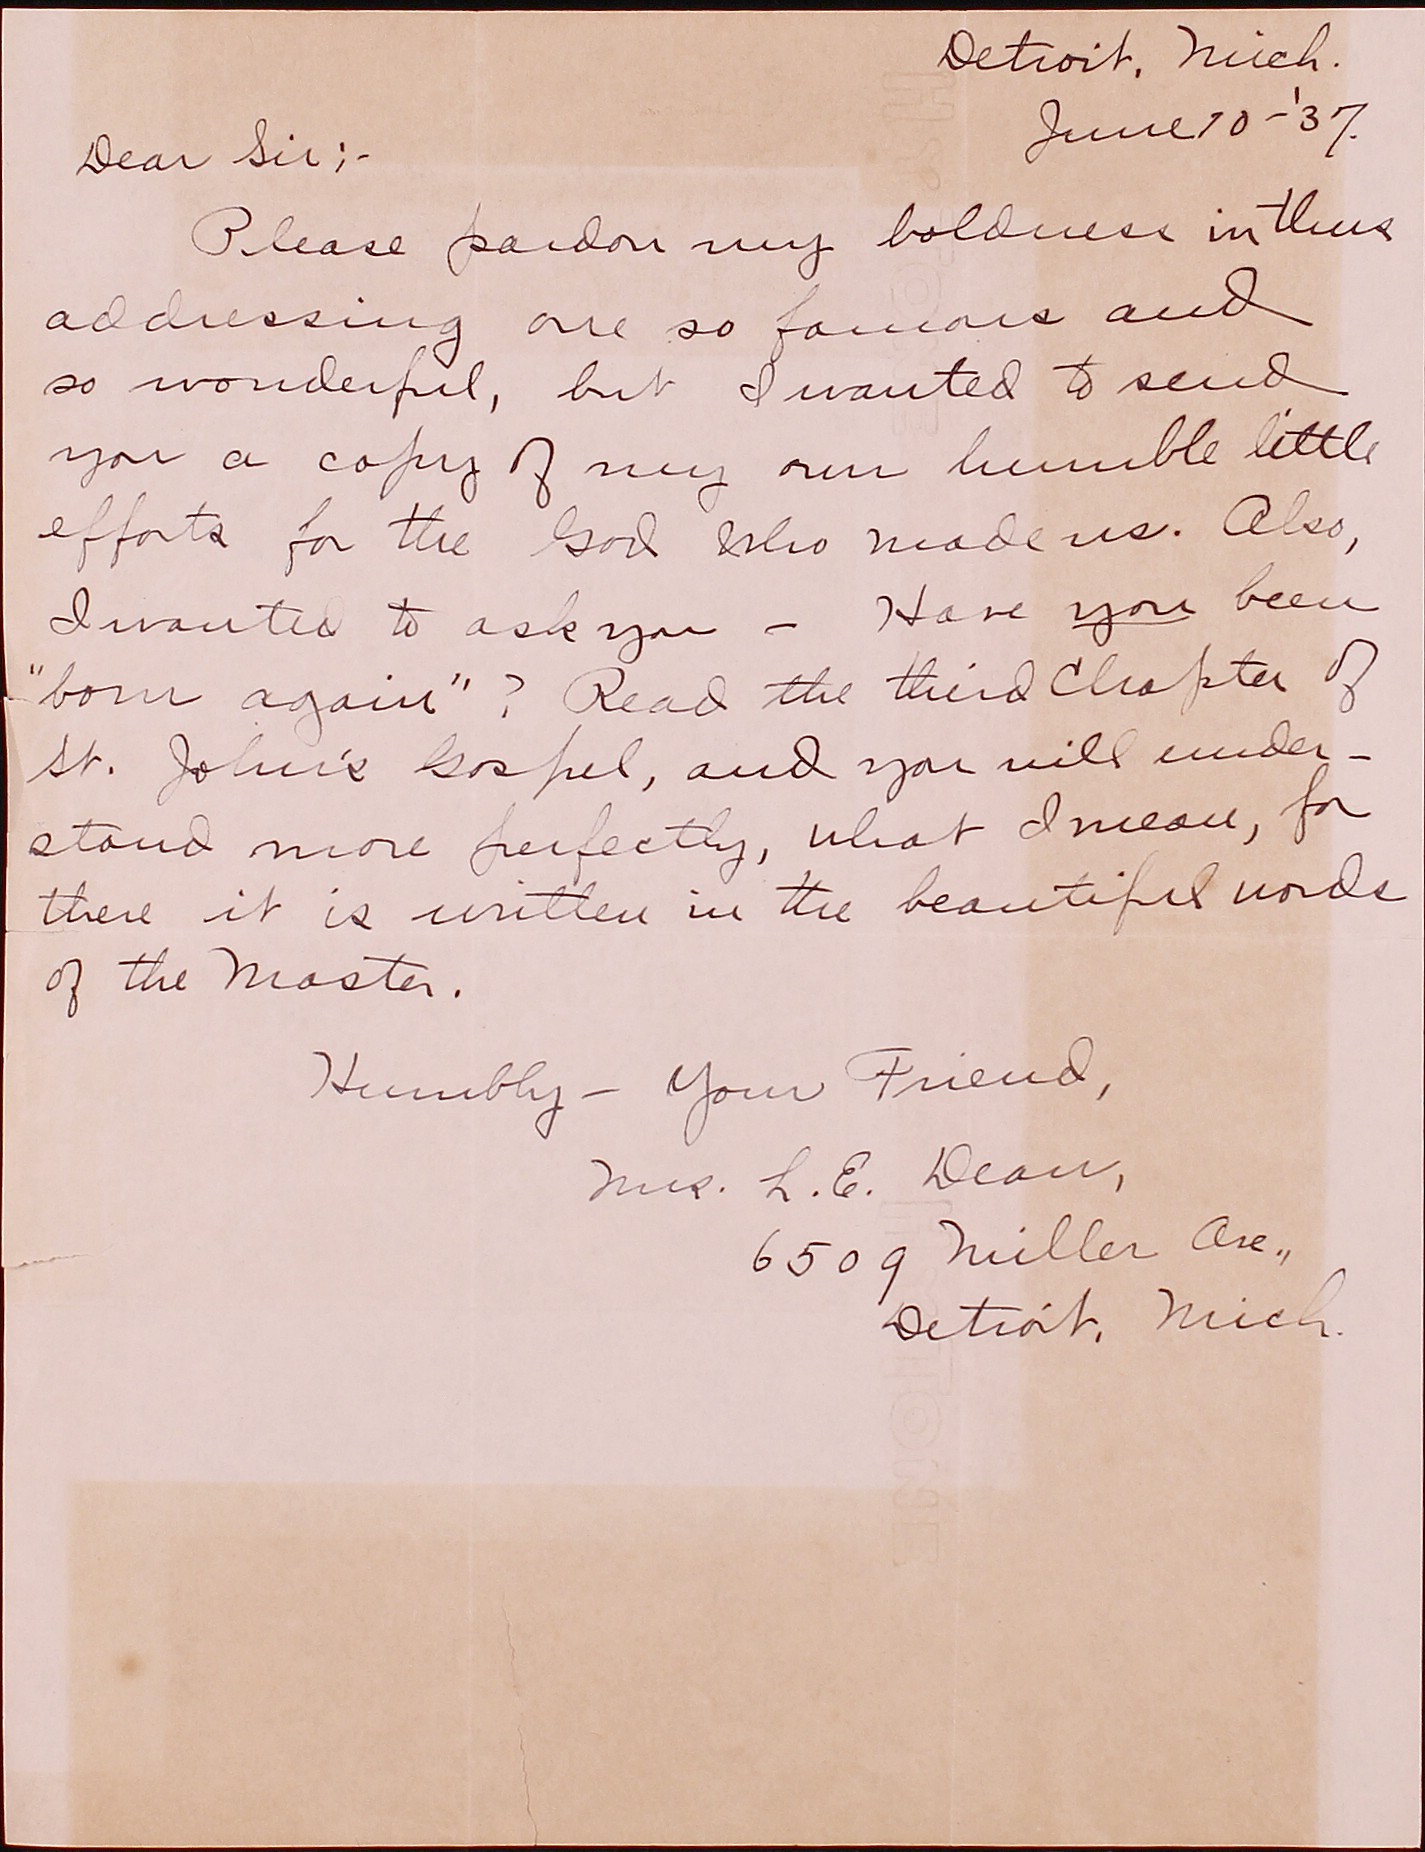 Detroit, Mich.
June 10-'37.
Dear Sir;-
Please pardon my boldness in thus
addressing one so famous and
so wonderful, but I wanted to send
you a copy of my own humble little
efforts for the God Who made us. Also,
I wanted to ask you - Have you been
"born again"? Read the third Chapter of
St. John's Gospel, and you will under-
stand more perfectly, what I mean, for
there it is written in the beautiful words
of the Master.
Humbly - Your Friend,
Mrs. L.E. Dean,
6509 Miller Ave.,
Detroit, Mich.